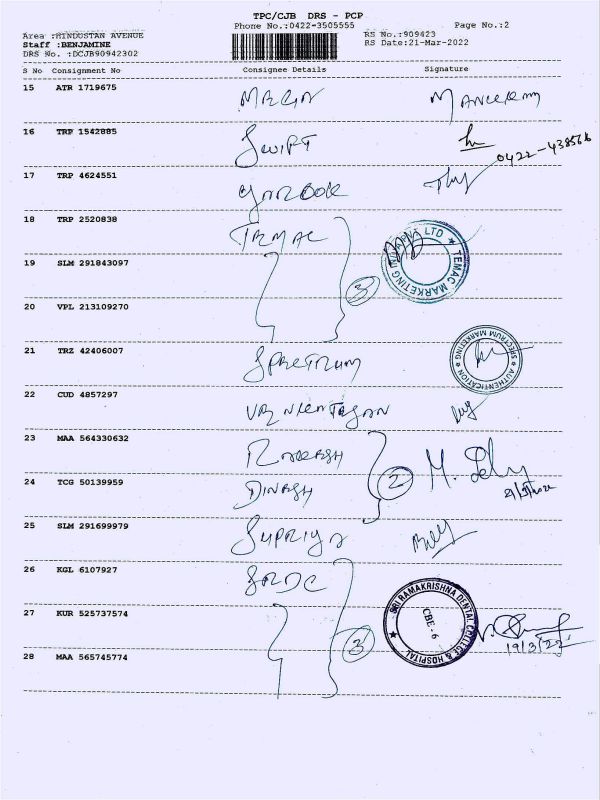 TPC/CJB DRS - PCP
Phone No.:0422-3505555 Page No.:2
Area :HINDUSTAN AVENUE RS No.:909423
Staff :BENJAMINE RS Date:21-Mar-2022
DRS No. :DCJB90942302
S No Consignment No Consignee Details Signature
15 ATR 1719675
16 TRP 1542885 SWIFT
0422-438566
17 TRP 4624551 YARBOOK
18 TRP 2520838 TEMAC
TEMAC MARKETING INDIA PVT LTD
19 SLM 291843097
3
20 VPL 213109270
21 TRZ 42406007 SPECTRUM
AUTHENTICATION SPECTRUM MARKETING
22 CUD 4857297
23 MAA 564330632 RAKESH
2
24 TCG 50139959 DINESH
25 SLM 291699979 SUPRIYA
26 KGL 6107927 SRDC
SRI RAMAKRISHNA DENTAL COLLEGE & HOSPITAL
CBE - 6
27 KUR 525737574
3
19/3/22
28 MAA 565745774